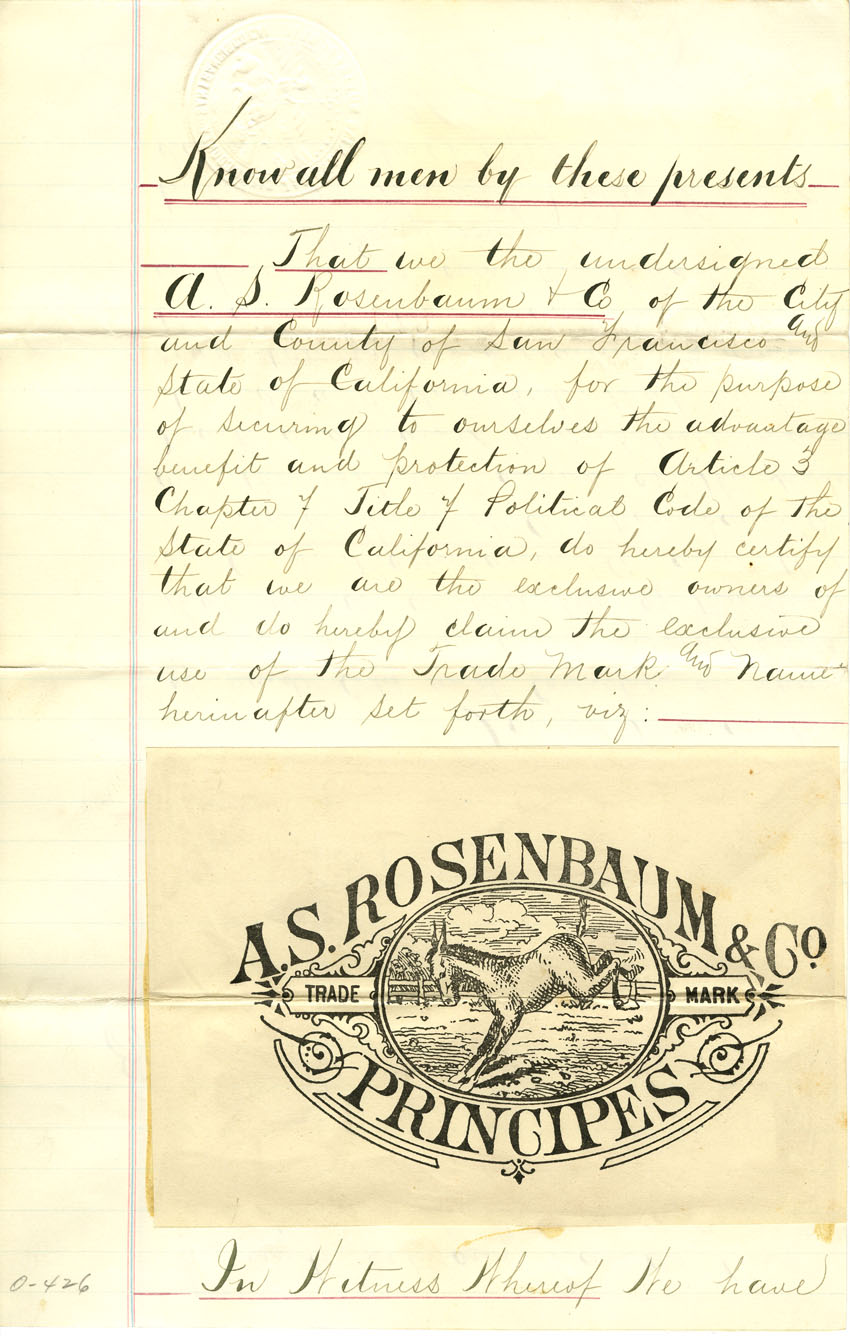 Know all men by these presents
That we the undersigned
A. S. Rosenbaum & Co of the City
and County of San Francisco and
State of California, for the purpose
of securing to ourselves the advantage
benefit and protection of Article 3
Chapter 7 Title 7 Political Code of the
State of California, do hereby certify
that we are the exclusive owners of
and do hereby claim the exclusive
use of the Trade Mark and Name
herinafter set forth, viz:
A.S. ROSENBAUM & Co.
TRADE MARK
PRINCIPES
In Witness Whereof We have
0-426